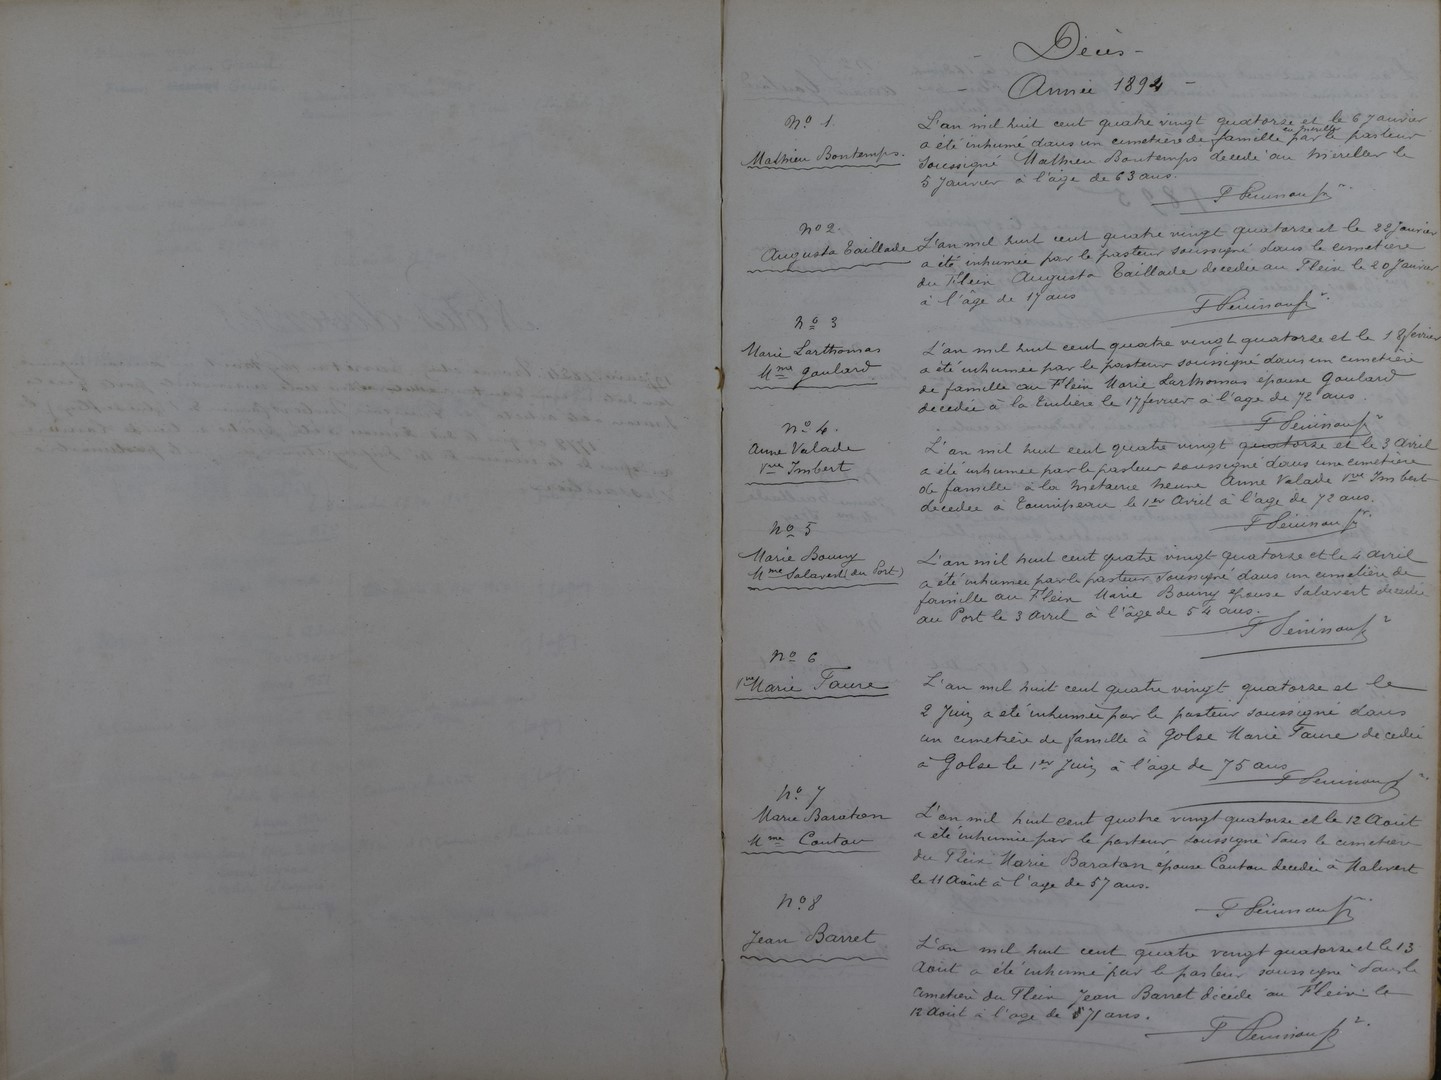 Décès -
- Année 1894 -
No 1
Mathieu Bontemps.
L'an mil huit cent quatre vingt quatorze et le 6 Janvier
a été inhumé dans un cimetière de famille par le pasteur
soussigné Mathieu Bontemps decedé au le
5 Janvier à l'âge de 63 ans.
No 2.
Augusta Taillade
L'an mil huit cent quatre vingt quatorze et le 22 Janvier
a été inhumée par le pasteur soussigné dans le cimetière
du Fleix Augusta Taillade decedée au Fleix le 20 Janvier
à l'âge de 17 ans
No 3
Marie Larthomas
Mme Goulard
L'an mil huit cent quatre vingt quatorze et le 18 fevrier
a été inhumée par le pasteur soussigné dans un cimetière
de famille au Fleix Marie Larthomas épouse Goulard
decedée à la le 17 fevrier a l'age de 72 ans.
No 4.
Anne Valade
Vve Imbert
L'an mil huit cent quatre vingt quatorze et le 3 Avril
a été inhumée par le pasteur soussigné dans une cimetière
de famille à la Metairie Neuve Anne Valade Vve Imbert
decedée à le 1er Avril à l'age de 72 ans.
No 5
Marie Bouny
Mme Salavert (du Port)
L'an mil huit cent quatre vingt quatorze et le 4 avril
a été inhumée par le pasteur soussigné dans un cimetière de
famille au Fleix Marie Bouny epouse Salavert decedée
au Port le 3 Avril à l'âge de 54 ans.
No 6
Vve Marie Faure
L'an mil huit cent quatre vingt quatorze et le
2 Juin a été inhumée par le pasteur soussigné dans
un cimetière de famille à Golse Marie Faure decedée
à Golse le 1er Juin à l'âge de 75 ans
No 7
Marie Baraton
Mme Coutou
L'an mil huit cent quatre vingt quatorze et le 12 Août
a été inhumée par le pasteur soussigné dans le cimetière
du Fleix Marie Baraton épouse Coutou decedée à Malivert
le 11 Août à l'age de 57 ans.
No 8
Jean Barret
L'an mil huit cent quatre vingt quatorze et le 13
Août a été inhumé par le pasteur soussigné dans le
cimetière du Fleix Jean Barret décédé au Fleix le
12 Août à l'age de 71 ans.